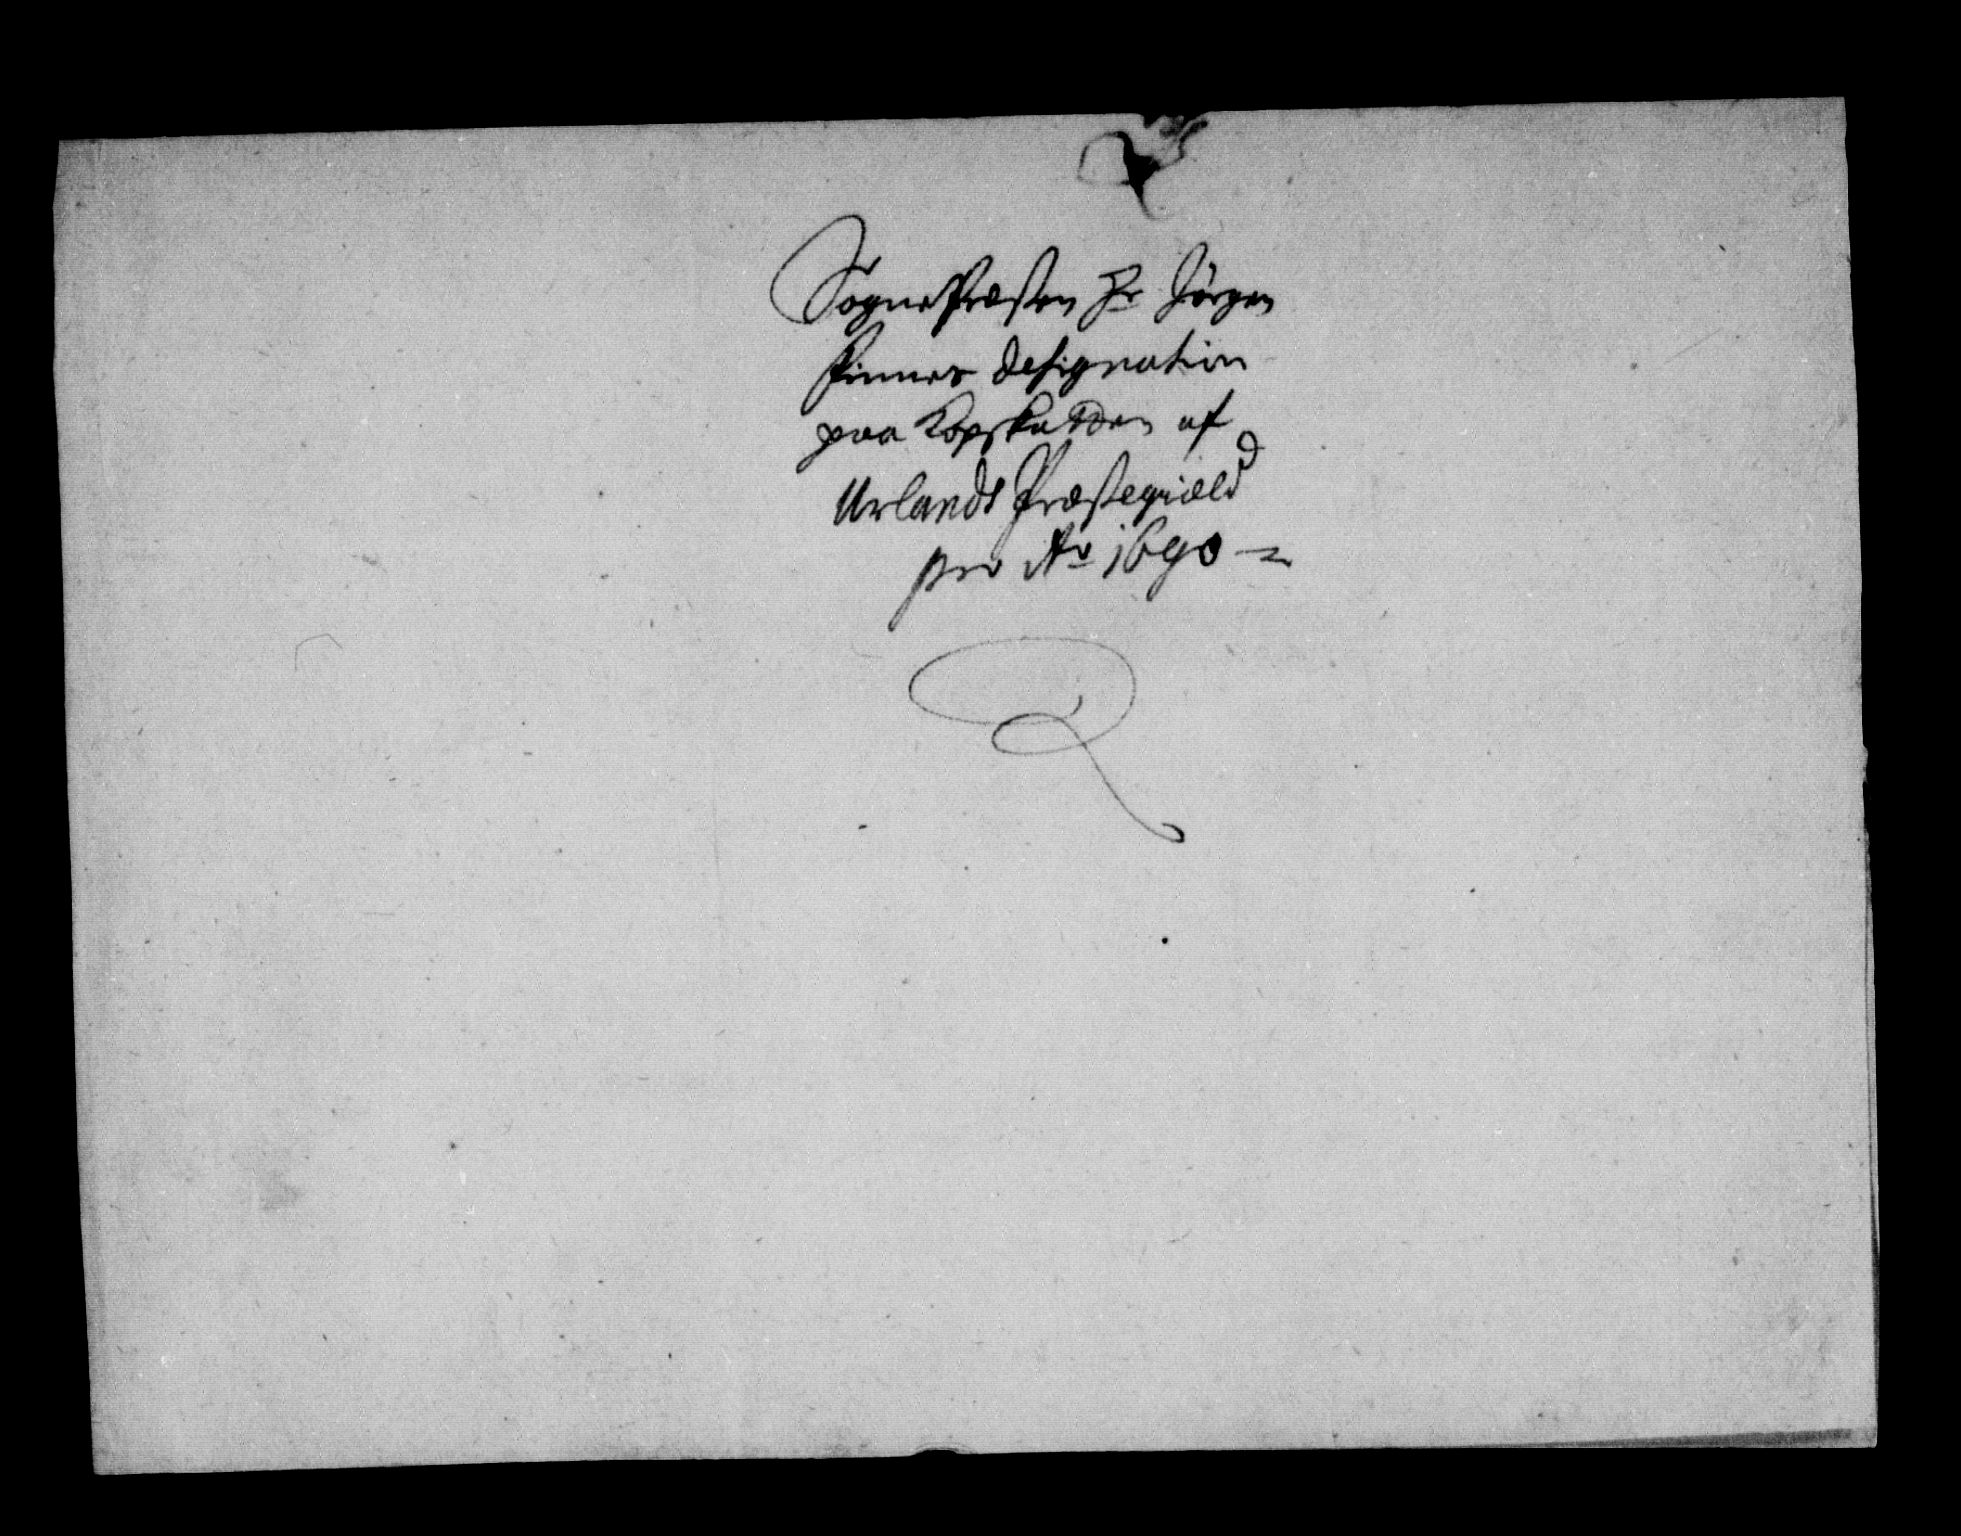 SognePræsten Hr Jörgen
Finnes Designation
paa Kopskatten af
Urlands Præstegiæld
pro Ao 1690